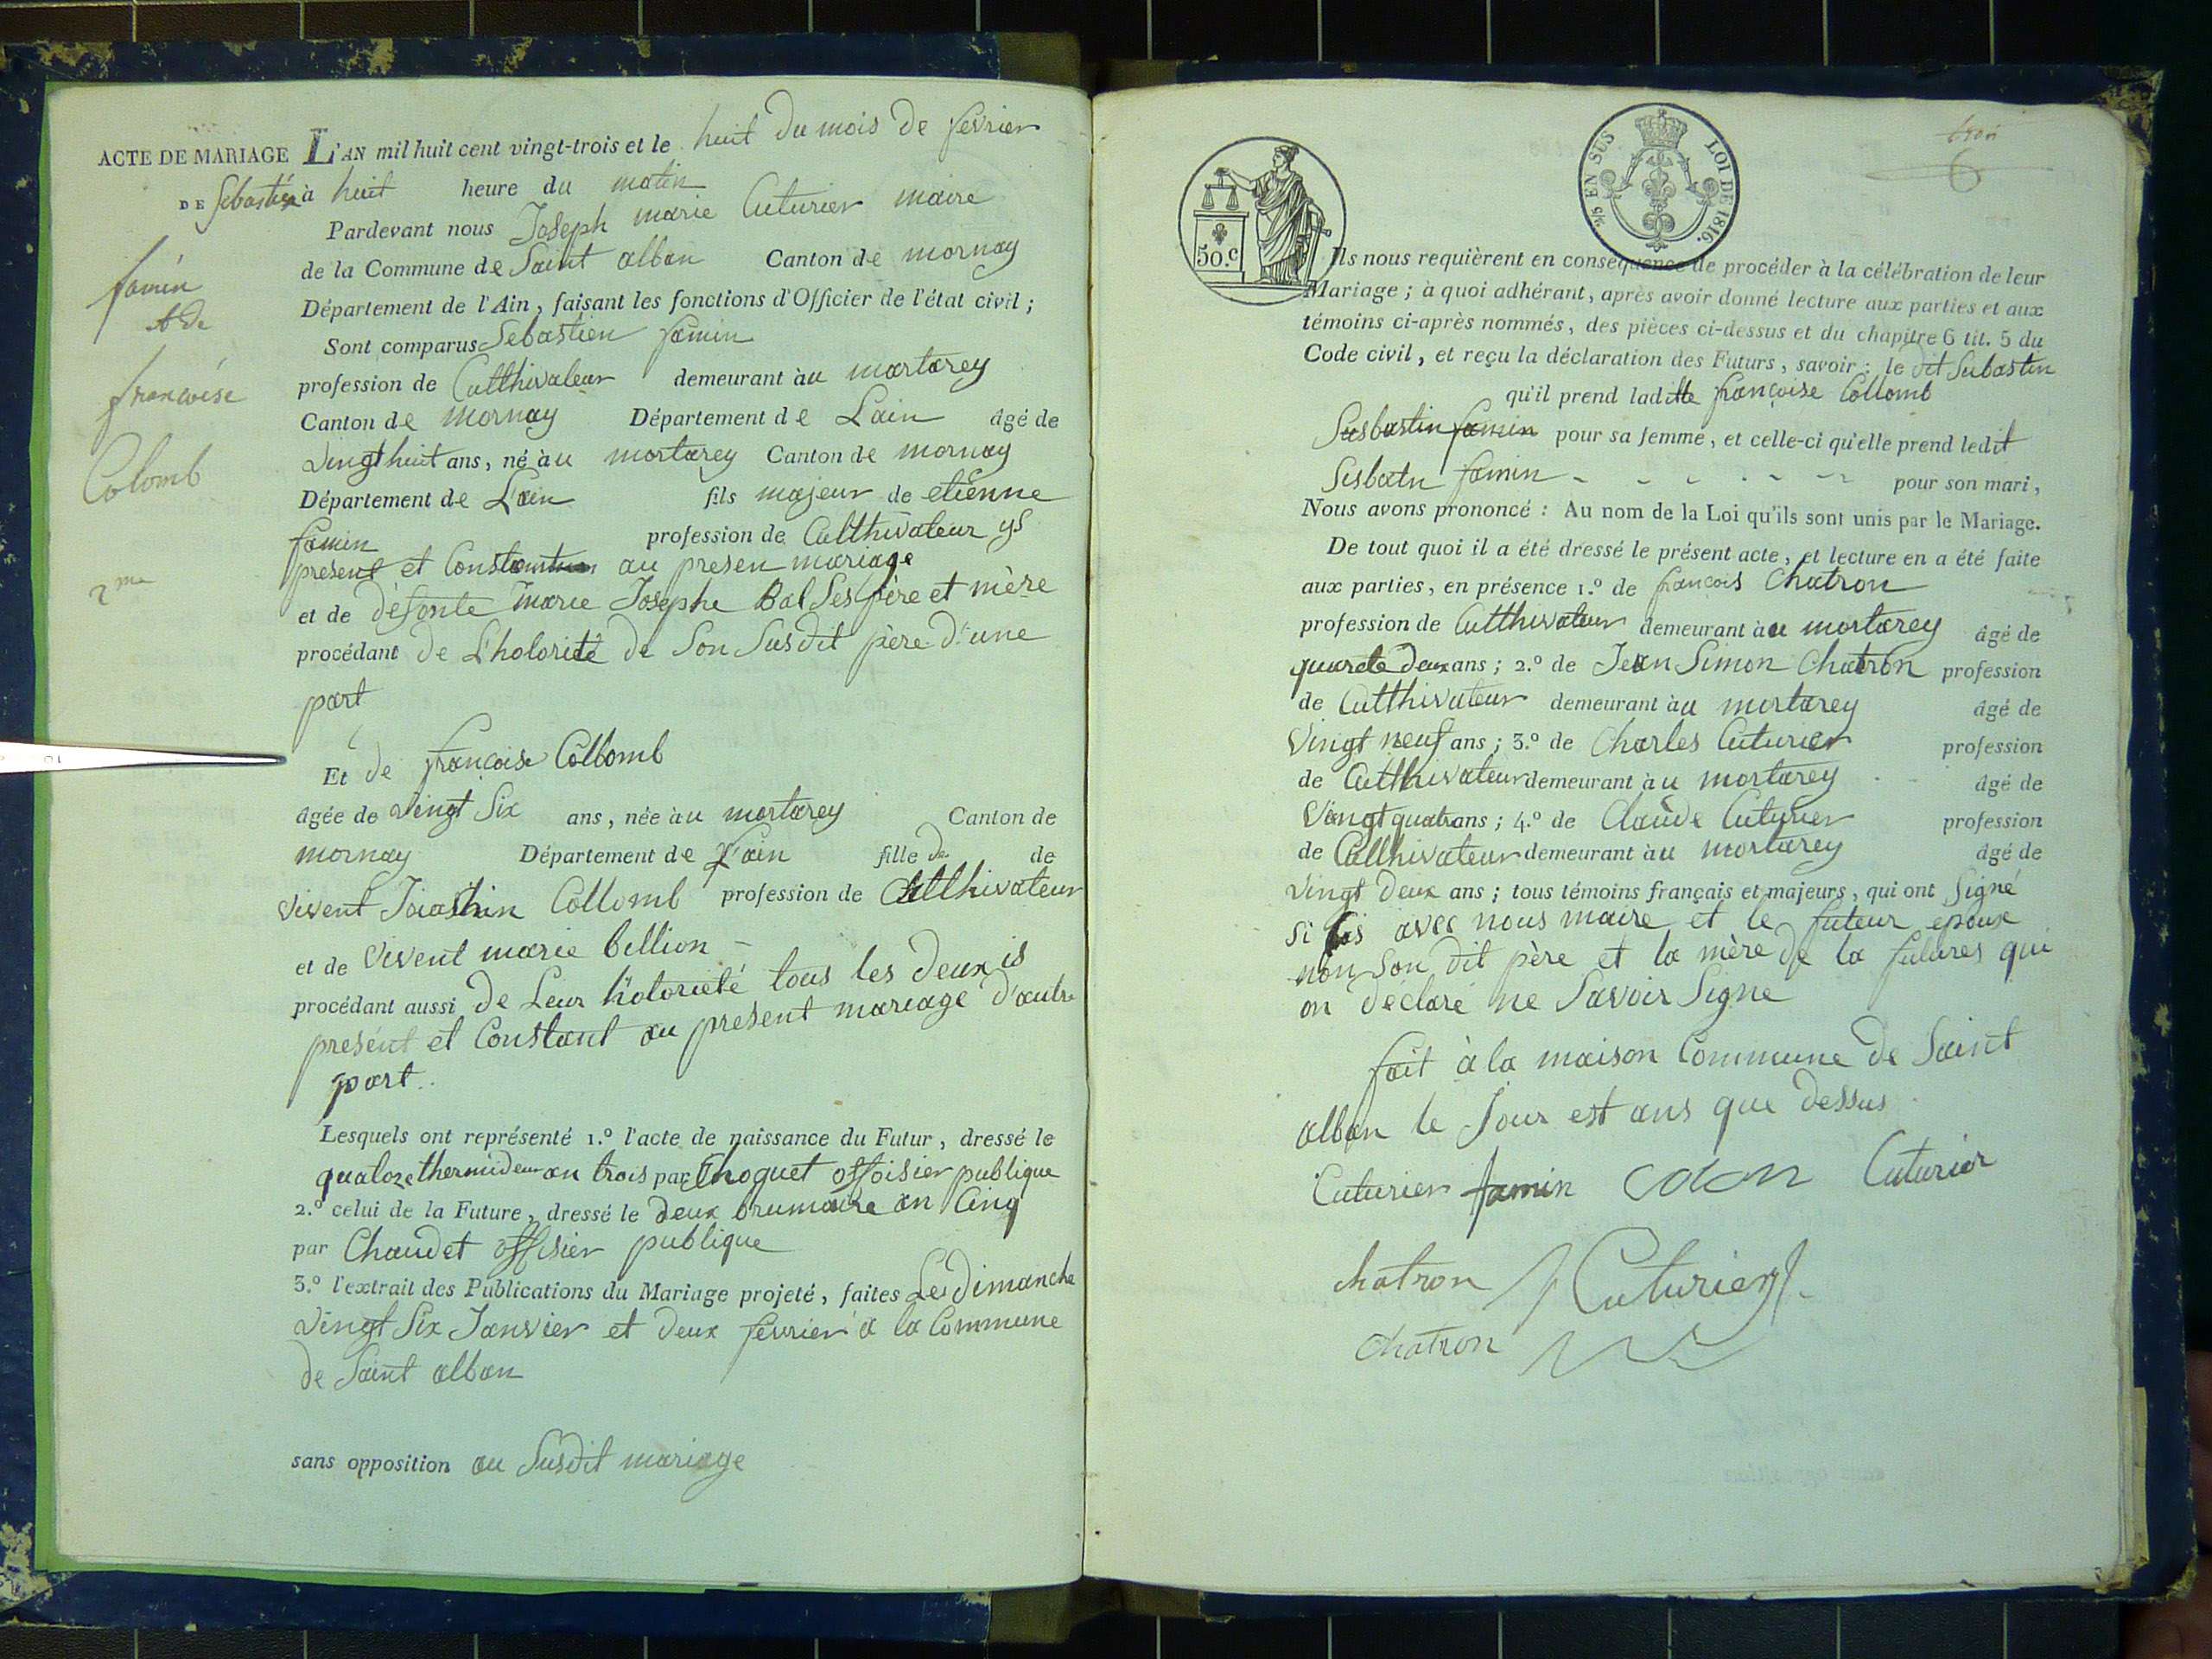 ACTE DE MARIAGE
DE Sebastien
famin
& de
francoise
Colomb
2me
L'AN mil huit cent vingt-trois et le huit du mois de fevrier
à huit heure du matin
Pardevant nous Joseph marie Cuturier maire
de la Commune de Saint alban Canton de mornay
Département de l'Ain, faisant les fonctions d'Officier de l'état civil ;
Sont comparus Sebastien famin
profession de Cultthivateur demeurant àu mortarey
Canton de mornay Département de Lain âgé de
vingt huit ans, né àu mortarey Canton de mornay
Département de Lain fils majeur de etienne
famin profession de Cultthivateur ys
present et au presen mariage
et de defonte marie Josephe Bal Ses père et mère
procédant de L'hotorité de Son Susdit père d'une
part
Et de françoise Collomb
âgée de vingt Six ans, née àu mortarey Canton de
mornay Département de L'ain fille de de
vivent Joiashin Collomb profession de Cultthivateur
et de vivent marie billion
procédant aussi de Leur hotorieté tous les deux is
présent et Constant au present mariage d'autre
part.
Lesquels ont représenté 1.º l'acte de naissance du Futur, dressé le
quatoze thermideur an trois par Choquet offoisier publique
2.º celui de la Future, dressé le deux brumaire an Cinq
par Chaudet offisier publique
3.º l'extrait des Publications du Mariage projeté, faites Les dimanche
vingt Six Janvier et deux fevrier a la Commune
de Saint alban
sans opposition au Susdit mariage
50.C
2/5 EN SUS LOI DE 1816.
trois
6
Ils nous requièrent en conséquence de procéder à la célébration de leur
Mariage ; à quoi adhérant, après avoir donné lecture aux parties et aux
témoins ci-après nommés, des pièces ci-dessus et du chapitre 6 tit. 5 du
Code civil, et reçu la déclaration des Futurs, savoir : le dit Subastin
qu'il prend laditte françoise Collomb
Susbastin famin pour sa femme, et celle-ci qu'elle prend ledit
Sisbatn famin pour son mari,
Nous avons prononcé : Au nom de la Loi qu'ils sont unis par le Mariage.
De tout quoi il a été dressé le présent acte, et lecture en a été faite
aux parties, en présence 1.º de francois Chatron
profession de Cultthivateur demeurant àu mortarey âgé de
quarete deux ans ; 2.º de Jean Simon Chatron profession
de Cultthivateur demeurant àu mortarey âgé de
vingt neuf ans ; 3.º de Charles Cuturier profession
de Cultthivateur demeurant àu mortarey âgé de
vingt quatr ans ; 4.º de Claude Cuturier profession
de Cultthivateur demeurant àu mortarey âgé de
vingt deux ans ; tous témoins français et majeurs, qui ont Signé
si avec nous maire et le futeur epoux
non Son dit père et la mère de la futures qui
on déclaré ne Savoir Signe
fait à la maison Commune de Saint
alban le Jour est ans que dessus
Cuturier famin colon Cuturier
chatron Cuturier
chatron